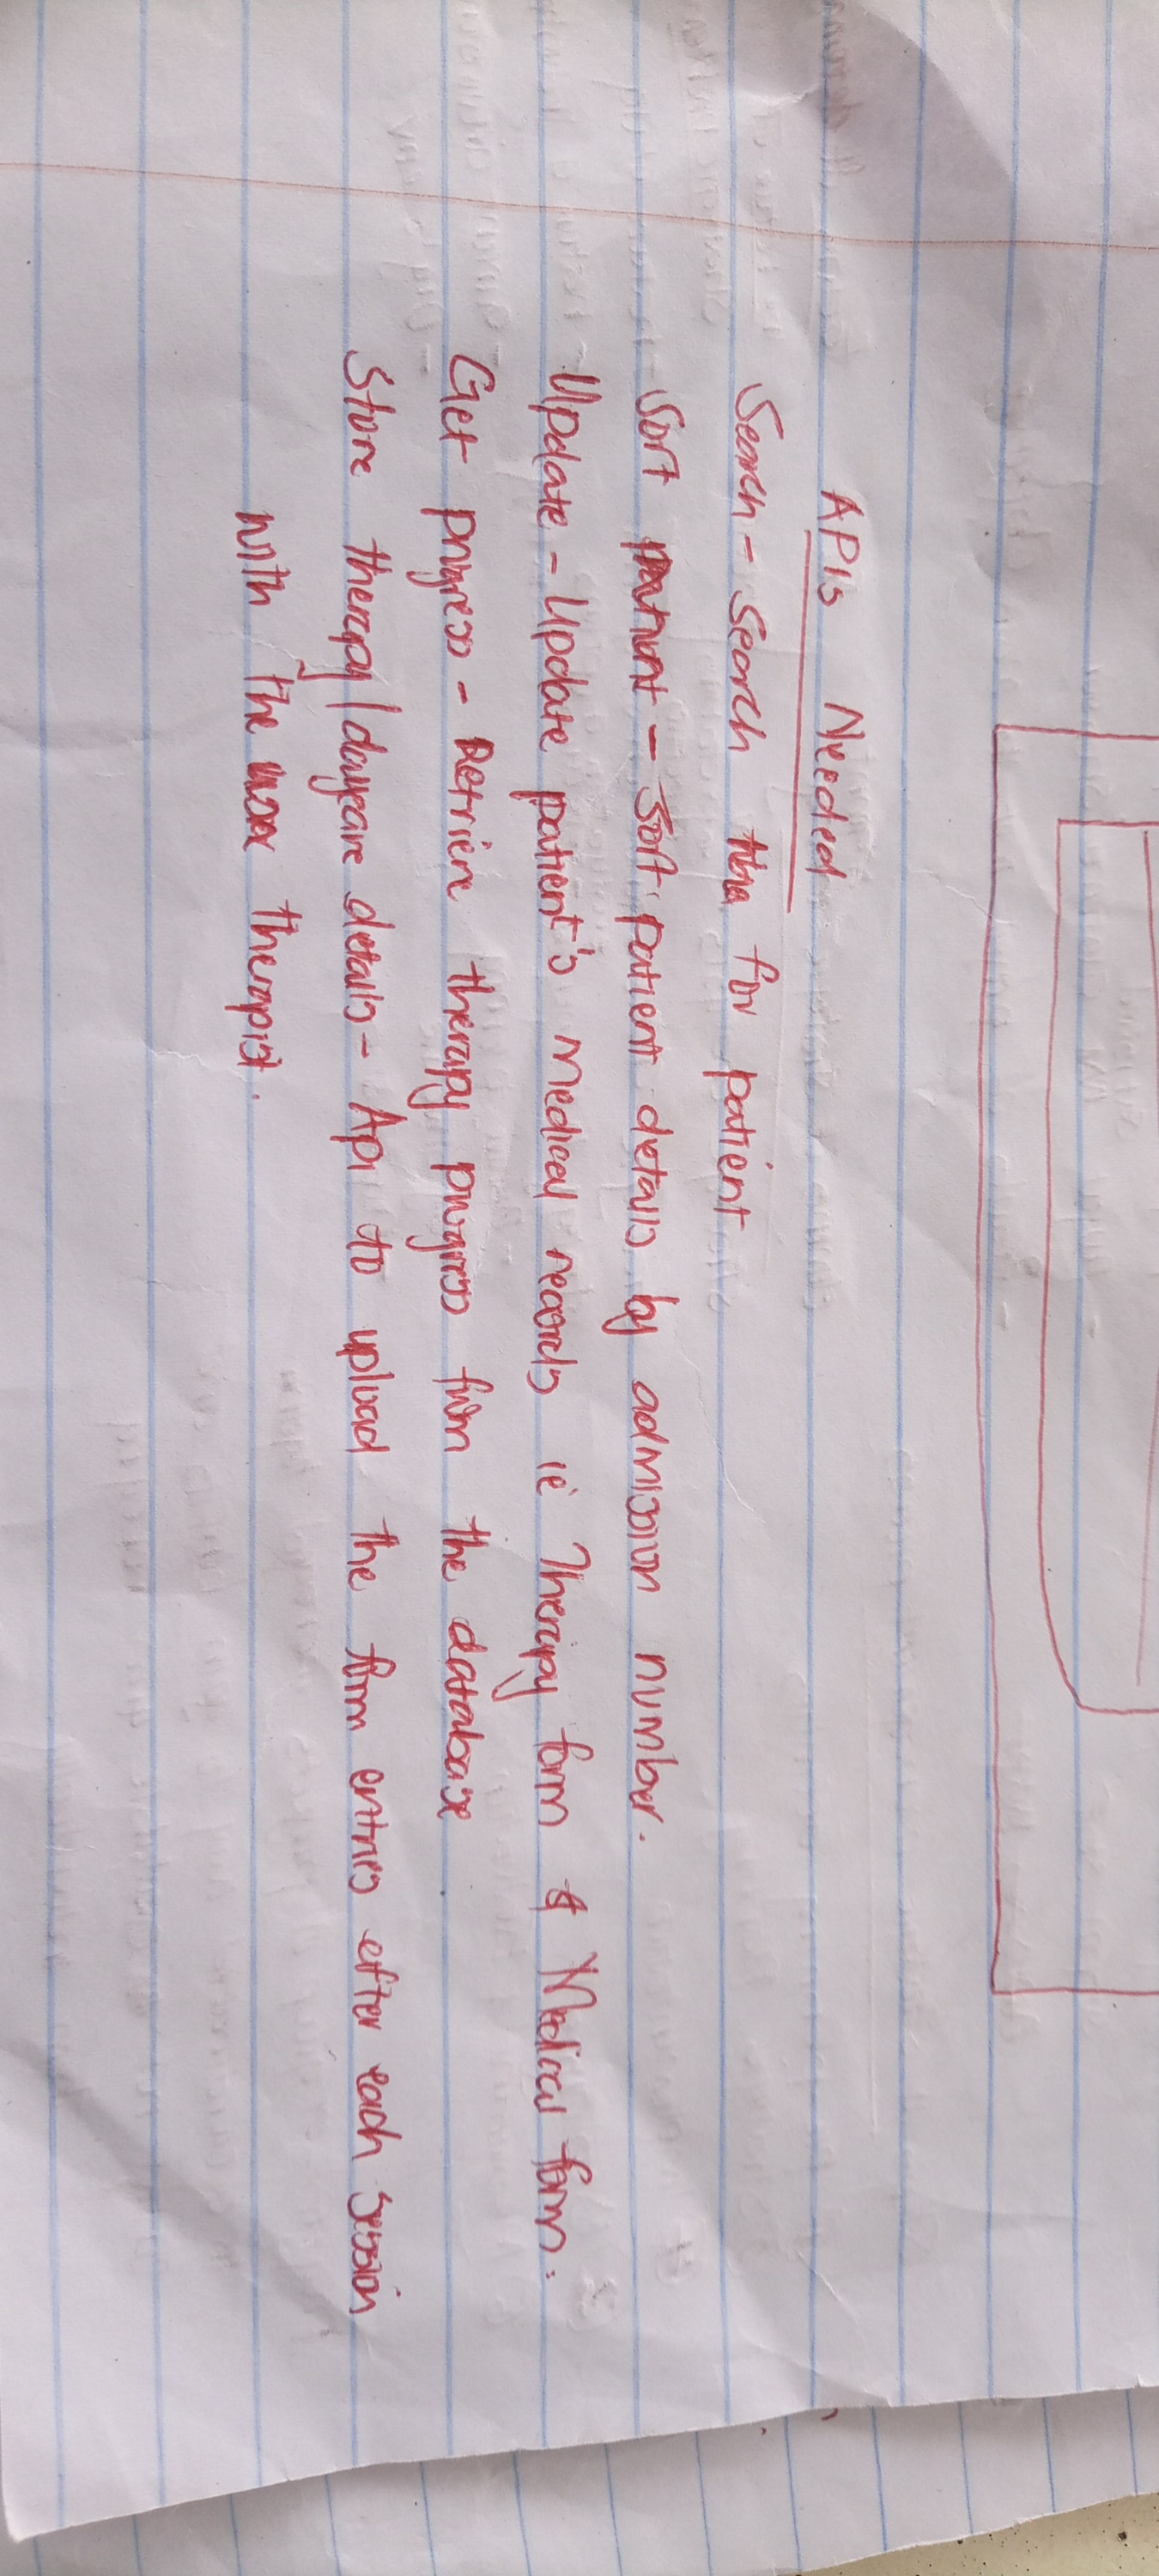 APIs Needed
Search - Search for patient
Sort patient - Sort patient details by admission number.
Update - Update patient's medical records ie Therapy form & Medical form.
Get progress - Retrieve therapy progress from the database
Store therapy/daycare details - Api to upload the form entries after each session
with the therapist.